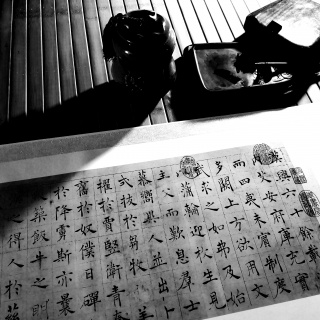 漢興六十
安府庫充實
而四夷未賓制度
多闕上方欲用文
武求之如弗及始
蒲輪迎枚生見
主父而歎息群士
慕嚮異人並出卜
式拔於芻牧弘羊
擢於賈豎衛青
奮於奴僕日磾
於降虜斯亦曩
築飯牛之朋
之得人於茲